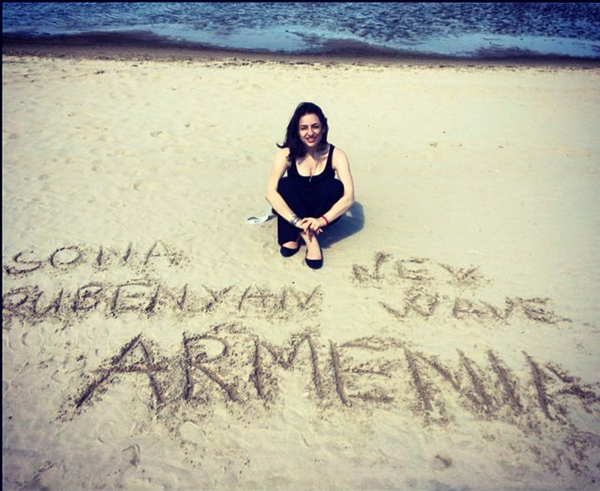 SONA
RUBENYAN
NEW
WAVE
ARMENIA